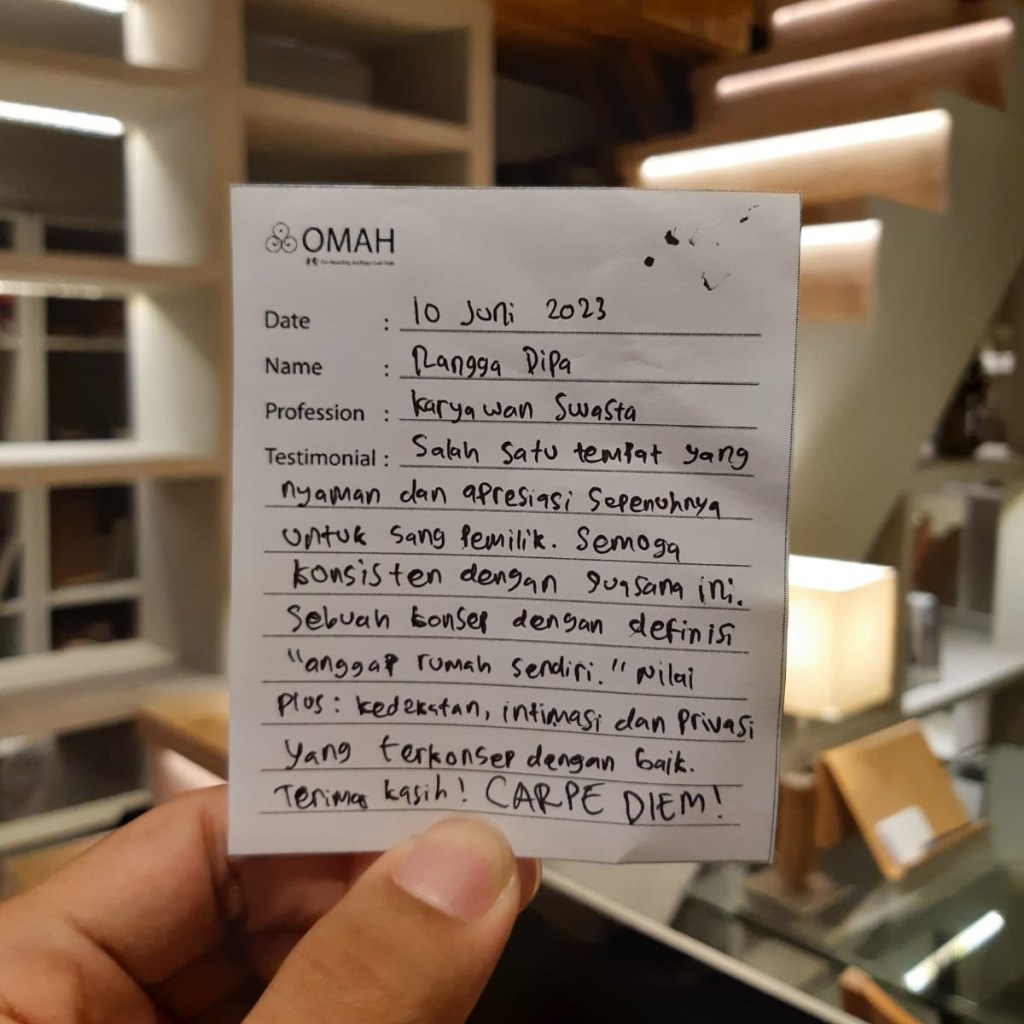 OMAH
Date : 10 Juni 2023
Name : Rangga Dipa
Profession : Karyawan Swasta
Testimonial : Salah satu tempat yang
nyaman dan apresiasi sepenuhnya
untuk sang pemilik. Semoga
konsisten dengan suasana ini.
Sebuah konsep dengan definisi
"anggap rumah sendiri." Nilai
plus: kedekatan, intimasi dan privasi
yang terkonsep dengan baik.
Terima kasih! CARPE DIEM!